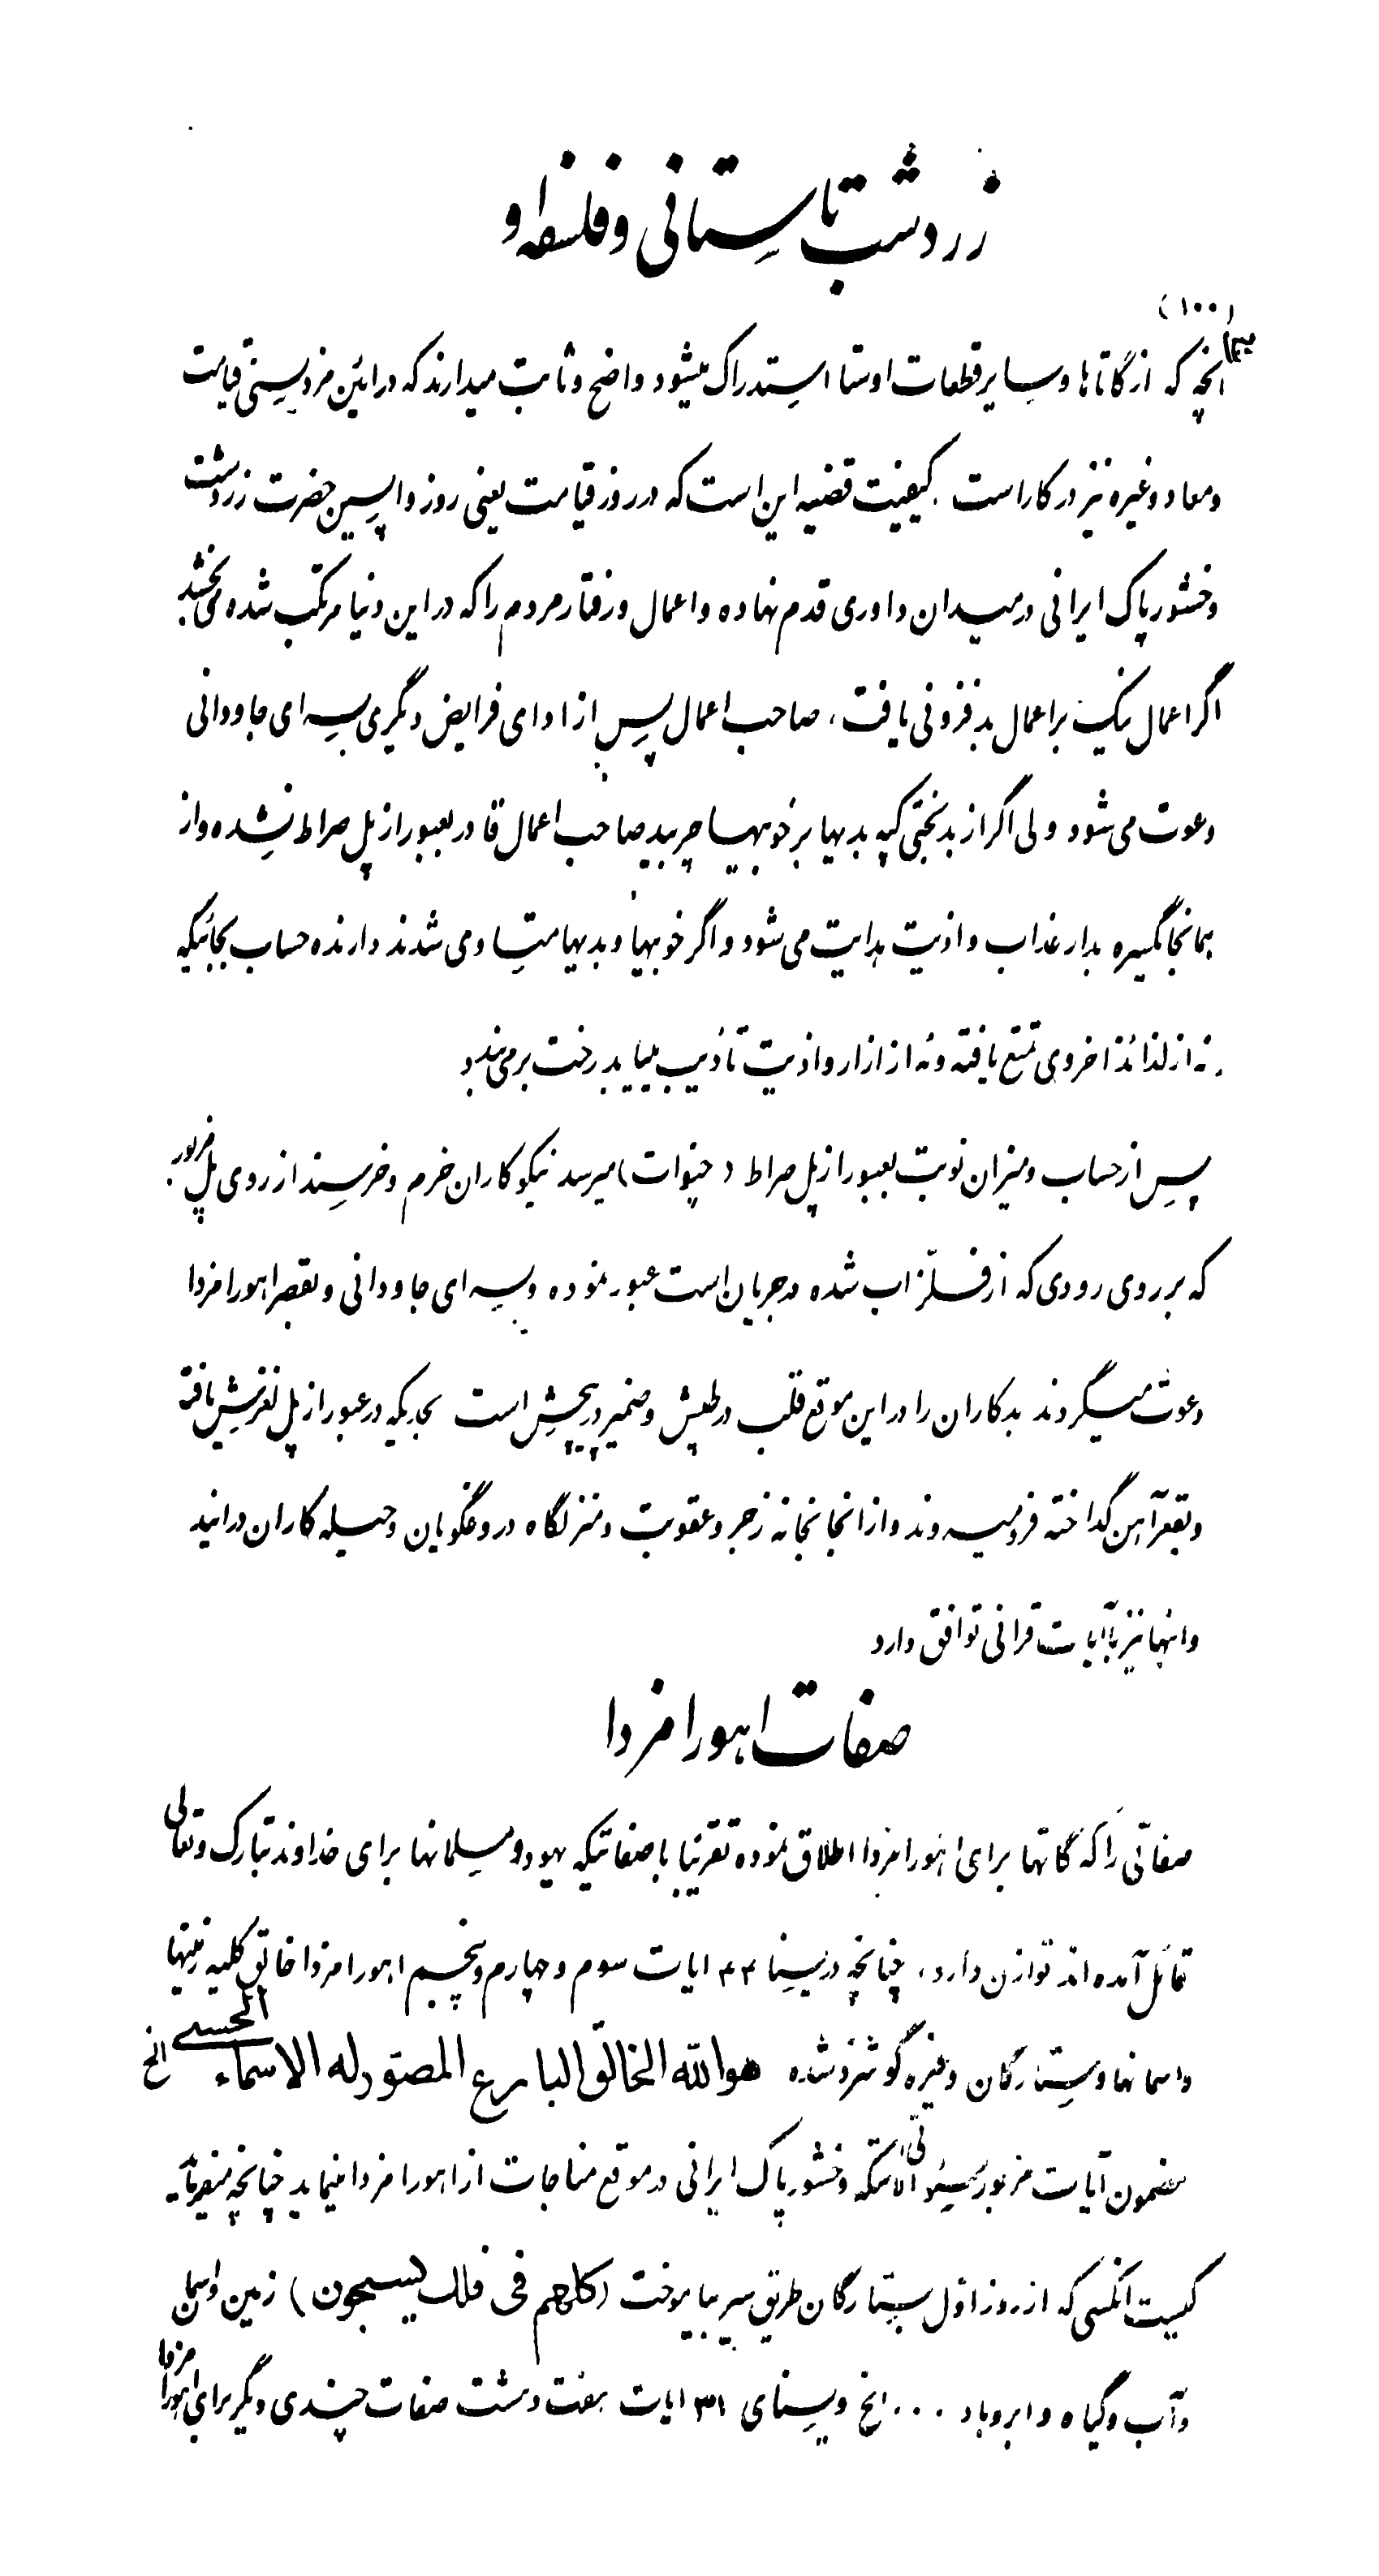 زردشت باستانی و فلسفه او
(۱۰۰)
آنچه که از گاتاها و سایر قطعات اوستا استدراک میشود واضح و ثابت میدارند که در ائین مزدیسنی قیامت
و معاد و غیره نیز در کار است. کیفیت قضیه این است که در روز قیامت یعنی روز واپسین حضرت زردشت
وخشور پاک ایرانی در میدان داوری قدم نهاده و اعمال و رفتار مردم را که در این دنیا مرتکب شده می بخشد
اگر اعمال نیک بر اعمال بد فزونی یافت، صاحب اعمال پس از ادای فرایض دیگری بسرای جاودانی
دعوت می شود ولی اگر از بدبختی کپه بدیها بر خوبیها چربید صاحب اعمال قادر بعبور از پل صراط نشده و از
همانجا یکسره بدار عذاب و اذیت هدایت می شود و اگر خوبیها و بدیها متساوی شدند دارنده حساب بجائیکه
نه از لذائذ اخروی تمتع یافته و نه از ازار و اذیت تأدیب بیابد رخت برمی بندد
پس از حساب و میزان نوبت بعبور از پل صراط (چنوات) میرسد نیکوکاران خرم و خرسند از روی پل مزبور
که بر روی رودی که از فلز اب شده در جریان است عبور نموده و بسرای جاودانی و بقصر اهورامزدا
دعوت میگردند بدکاران را در این موقع قلب در طپش و ضمیر در پیچش است بمجردیکه در عبور از پل لغزش یافته
و بقعر آهن گداخته فرو میروند و از انجا بخانه زجر و عقوبت و منزلگاه دروغگویان و حیله کاران درایند
و اینها نیز با آیات قرانی توافق دارد
صفات اهورامزدا
صفاتی را که گاتها برای اهورامزدا اطلاق نموده تقریبا با صفاتیکه یهود و مسلمانها برای خداوند تبارک و تعالی
قائل آمده اند توازن دارد، چنانچه در یسنا ۴۴ ایات سوم و چهارم و پنجم اهورامزدا خالق کلیه زمینها
و اسمانها و ستارگان و غیره گوشزد شده هو الله الخالق البارئ المصور له الاسماء الحسنی الخ
مضمون آیات مزبور یسنوالاتی استکه وخشور پاک ایرانی در موقع مناجات از اهورامزدا مینماید چنانچه میفرماید
کیست انکسی که از روز اول بستارگان طریق سیر بیاموخت (کل هم فی فلک یسبحون) زمین و اسمان
و آب و گیاه و ابر و باد ... الخ و یسنای ۳۱ ایات هفت و هشت صفات چندی دیگر برای اهورا مزدا